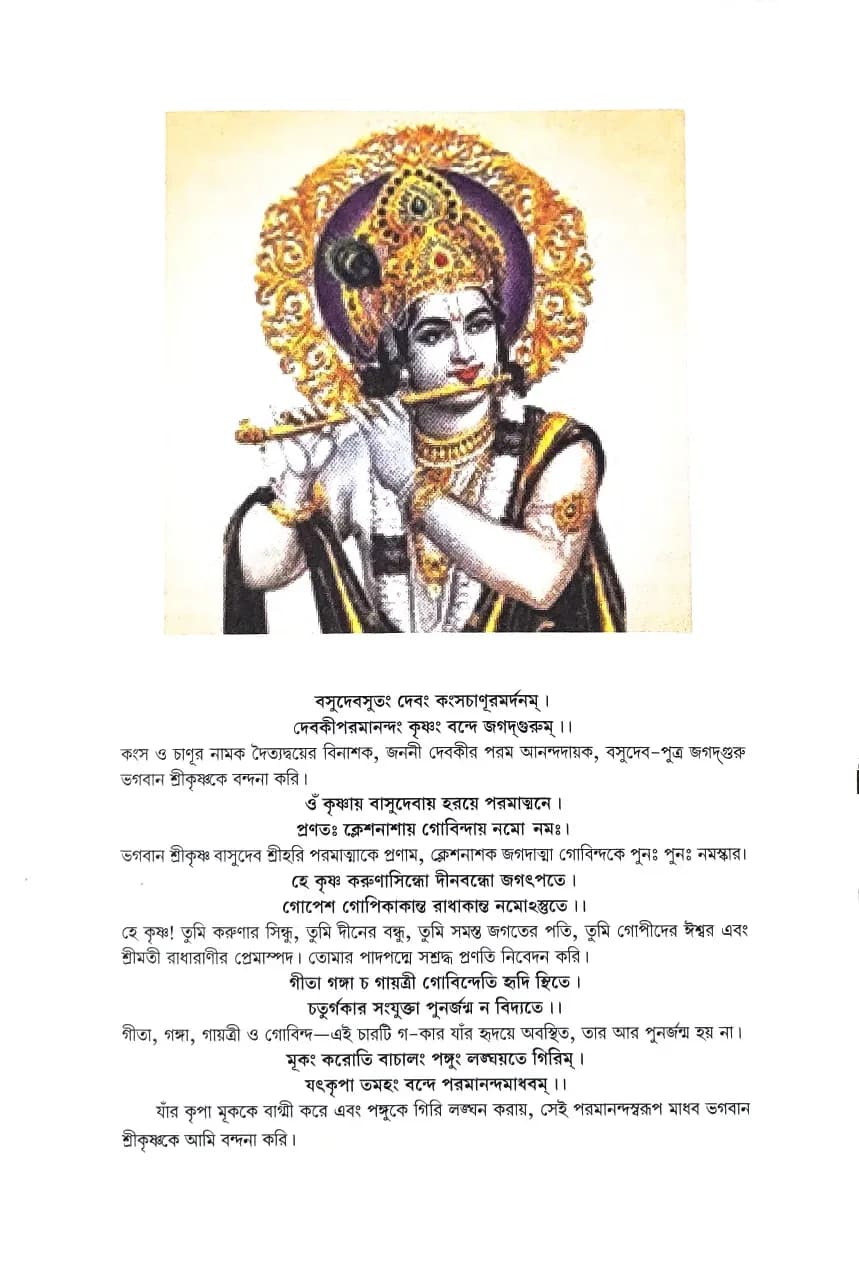 বসুদেবসুতং দেবং কংসচাণূরমর্দনম্।
দেবকীপরমানন্দং কৃষ্ণং বন্দে জগদ্‌গুরুম্।।
কংস ও চাণূর নামক দৈত্যদ্বয়ের বিনাশক, জননী দেবকীর পরম আনন্দদায়ক, বসুদেব-পুত্র জগদ্‌গুরু
ভগবান শ্রীকৃষ্ণকে বন্দনা করি।
ওঁ কৃষ্ণায় বাসুদেবায় হরয়ে পরমাত্মনে।
প্রণতঃ ক্লেশনাশায় গোবিন্দায় নমো নমঃ।
ভগবান শ্রীকৃষ্ণ বাসুদেব শ্রীহরি পরমাত্মাকে প্রণাম, ক্লেশনাশক জগদাত্মা গোবিন্দকে পুনঃ পুনঃ নমস্কার।
হে কৃষ্ণ করুণাসিন্ধো দীনবন্ধো জগৎপতে।
গোপেশ গোপিকাকান্ত রাধাকান্ত নমোঽস্তুতে।।
হে কৃষ্ণ! তুমি করুণার সিন্ধু, তুমি দীনের বন্ধু, তুমি সমস্ত জগতের পতি, তুমি গোপীদের ঈশ্বর এবং
শ্রীমতী রাধারাণীর প্রেমাস্পদ। তোমার পাদপদ্মে সশ্রদ্ধ প্রণতি নিবেদন করি।
গীতা গঙ্গা চ গায়ত্রী গোবিন্দেতি হৃদি স্থিতে।
চতুর্গকার সংযুক্তা পুনর্জন্ম ন বিদ্যতে।।
গীতা, গঙ্গা, গায়ত্রী ও গোবিন্দ—এই চারটি গ-কার যাঁর হৃদয়ে অবস্থিত, তার আর পুনর্জন্ম হয় না।
মূকং করোতি বাচালং পঙ্গুং লঙ্ঘয়তে গিরিম্।
যৎকৃপা তমহং বন্দে পরমানন্দমাধবম্।।
যাঁর কৃপা মূককে বাগ্মী করে এবং পঙ্গুকে গিরি লঙ্ঘন করায়, সেই পরমানন্দস্বরূপ মাধব ভগবান
শ্রীকৃষ্ণকে আমি বন্দনা করি।